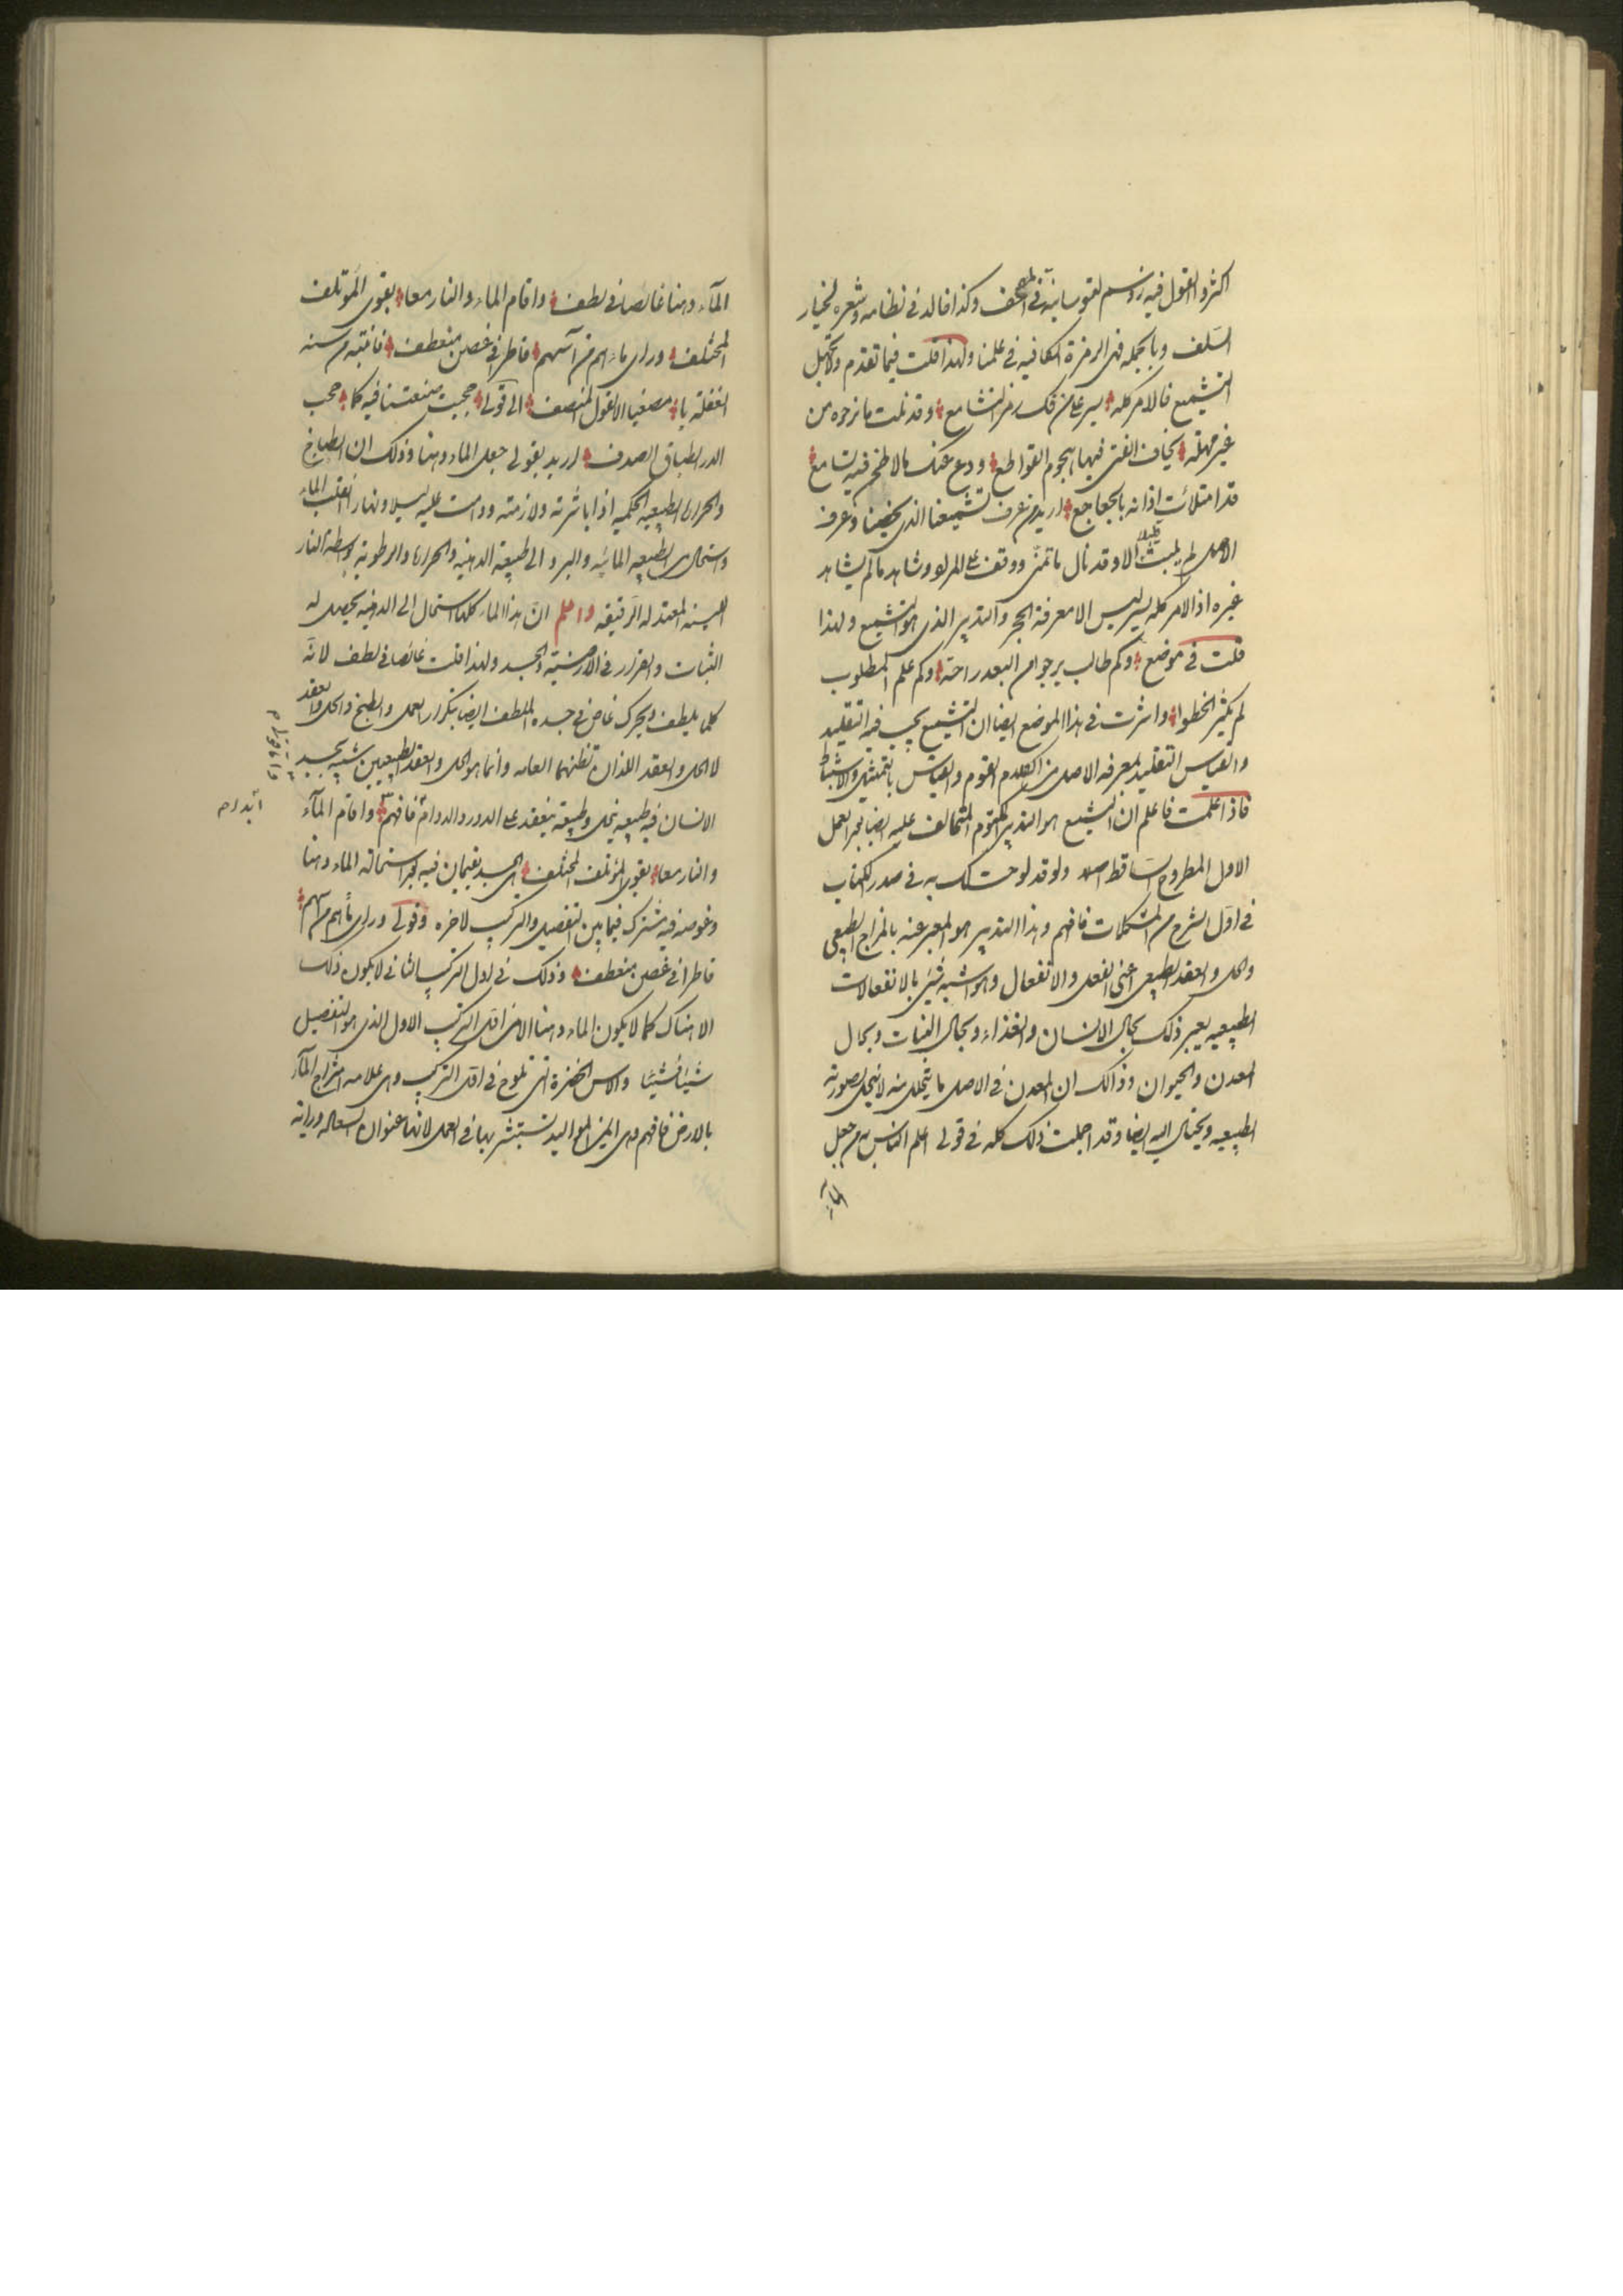 اكثروا القول فيه زوسم لثيوسابية في المصحف وكذا خالد في نظامه وشعره لخيار
السلف وبالجمله فهى الرمزة الكافيه في علمنا ولهذا قلت فيما تقدم ولا تجهل
التشميع فالامر كله يسير على من فك رمز التشامع وقد نلت ما نرجوه من
غير مهلة يخاف الفتى فيها هجوم القواطع ودع عنك مالا طحن فيه لسامع
قد امتلأت اذانه بالجعاجع اريد من عرف تشميعنا الذى يخصنا وعرف
الاصل لم يلبث الا وقد نال ما تمنى ووقف على المراد وشاهد مالم يشاهد
غيره اذ الامر كله يسير ليس الا معرفة الحجر والتدبير الذى هو التشميع ولهذا
قلت في موضع وكم طالب يرجوا من البعد راحة وكم علم المطلوب
لم يكثر الخطوا واشرت في هذا الموضع ايضا ان التشميع يجب فيه التقليد
والقياس التقليد لمعرفه الاصل من كلام القوم والقياس بالتمثيل والاستنباط
فاذا علمت فاعلم ان التشميع هو التدبير المكتوم المتحالف عليه ايضا بحر العمل
الاول المطروح الساقط اصلا ولو قد لوحت لك به في صدر الكتاب
في اول الشرح من المشكلات فافهم وهذا التدبير هو المعبر عنه بالمزاج الطبيعى
والحل والعقد الطبيعى اعنى الفعل والانفعال وهو اشبه شئ بالانفعالات
الطبيعيه يعبر ذلك بحال الانسان والغذاء وبحال النبات وبحال
المعدن والحيوان وذالك ان المعدن في الاصل ما يتحلل منه لا ينحل لصورته
الطبيعيه ويختال اليه ايضا وقد اجملت ذلك كله في قولى اعلم الناس به من جعل
المآء
المآء دهنا غائصا في لطف واقام الماء والنار معا بقوى المؤتلف
المختلف وراى ماءهم من آسهم قاطرا في غصن منعطف فانتبه من سنة
الغفلة يا مصغيا لا لقول المنصف الى قولى حجبت صنعتنا فيه كما حجب
الدر اطباق الصدف اريد بقولى جعل الماء دهنا وذلك ان الطباخ
والحرارة الطبيعيه الحكميه اذا باشرته ولازمته ودامت عليه ليلا ونهارا انقلب الماء
واستحال من الطبيعيه المائيه والبرد الى طبيعة الدهنية والحرارة والرطوبة بواسطة النار
اللينة المعتدله الرقيقه واعلم ان هذا الماء كلما استحال الى الدهنيه يحصل له
الثبات والقرار في الارضية والجسد ولهذا قلت غائصا في لطف لانه
كلما يلطف ويحرك غاص في جسده الملطف ايضا بتكرار العمل والطبخ والحل والعقد
لا الحل والعقد اللذان تظنهما العامه وانما هو الحل والعقد الطبيعيين شبيه بجسد
الانسان فيه طبيعيه ينحل وطبيعة ينعقد على الدور والدوام فافهم واقام المآء
والنار معا بقوى المؤتلف المختلف اى الجسد يقيمان فيه بحر استحالة الماء دهنا
وغوصه فيه مشترك فيما بين التفصيل والتركيب لاخره وقولى وراى ماءهم من آسهم
قاطرا في غصن منعطف وذلك في اول التركيب الثانى لا يكون ذلك
الا هناك كما لا يكون الماء دهنا الا في اول التركيب الاول الذى هو التفصيل
شيئا فشيئا والاس الخضرة التى تلوح في اول التركيب وهى علامة امتزاج المآء
بالارض فافهم وهى المواليد تستبشر بها في العمل لانها عنوان السعاله ورايته